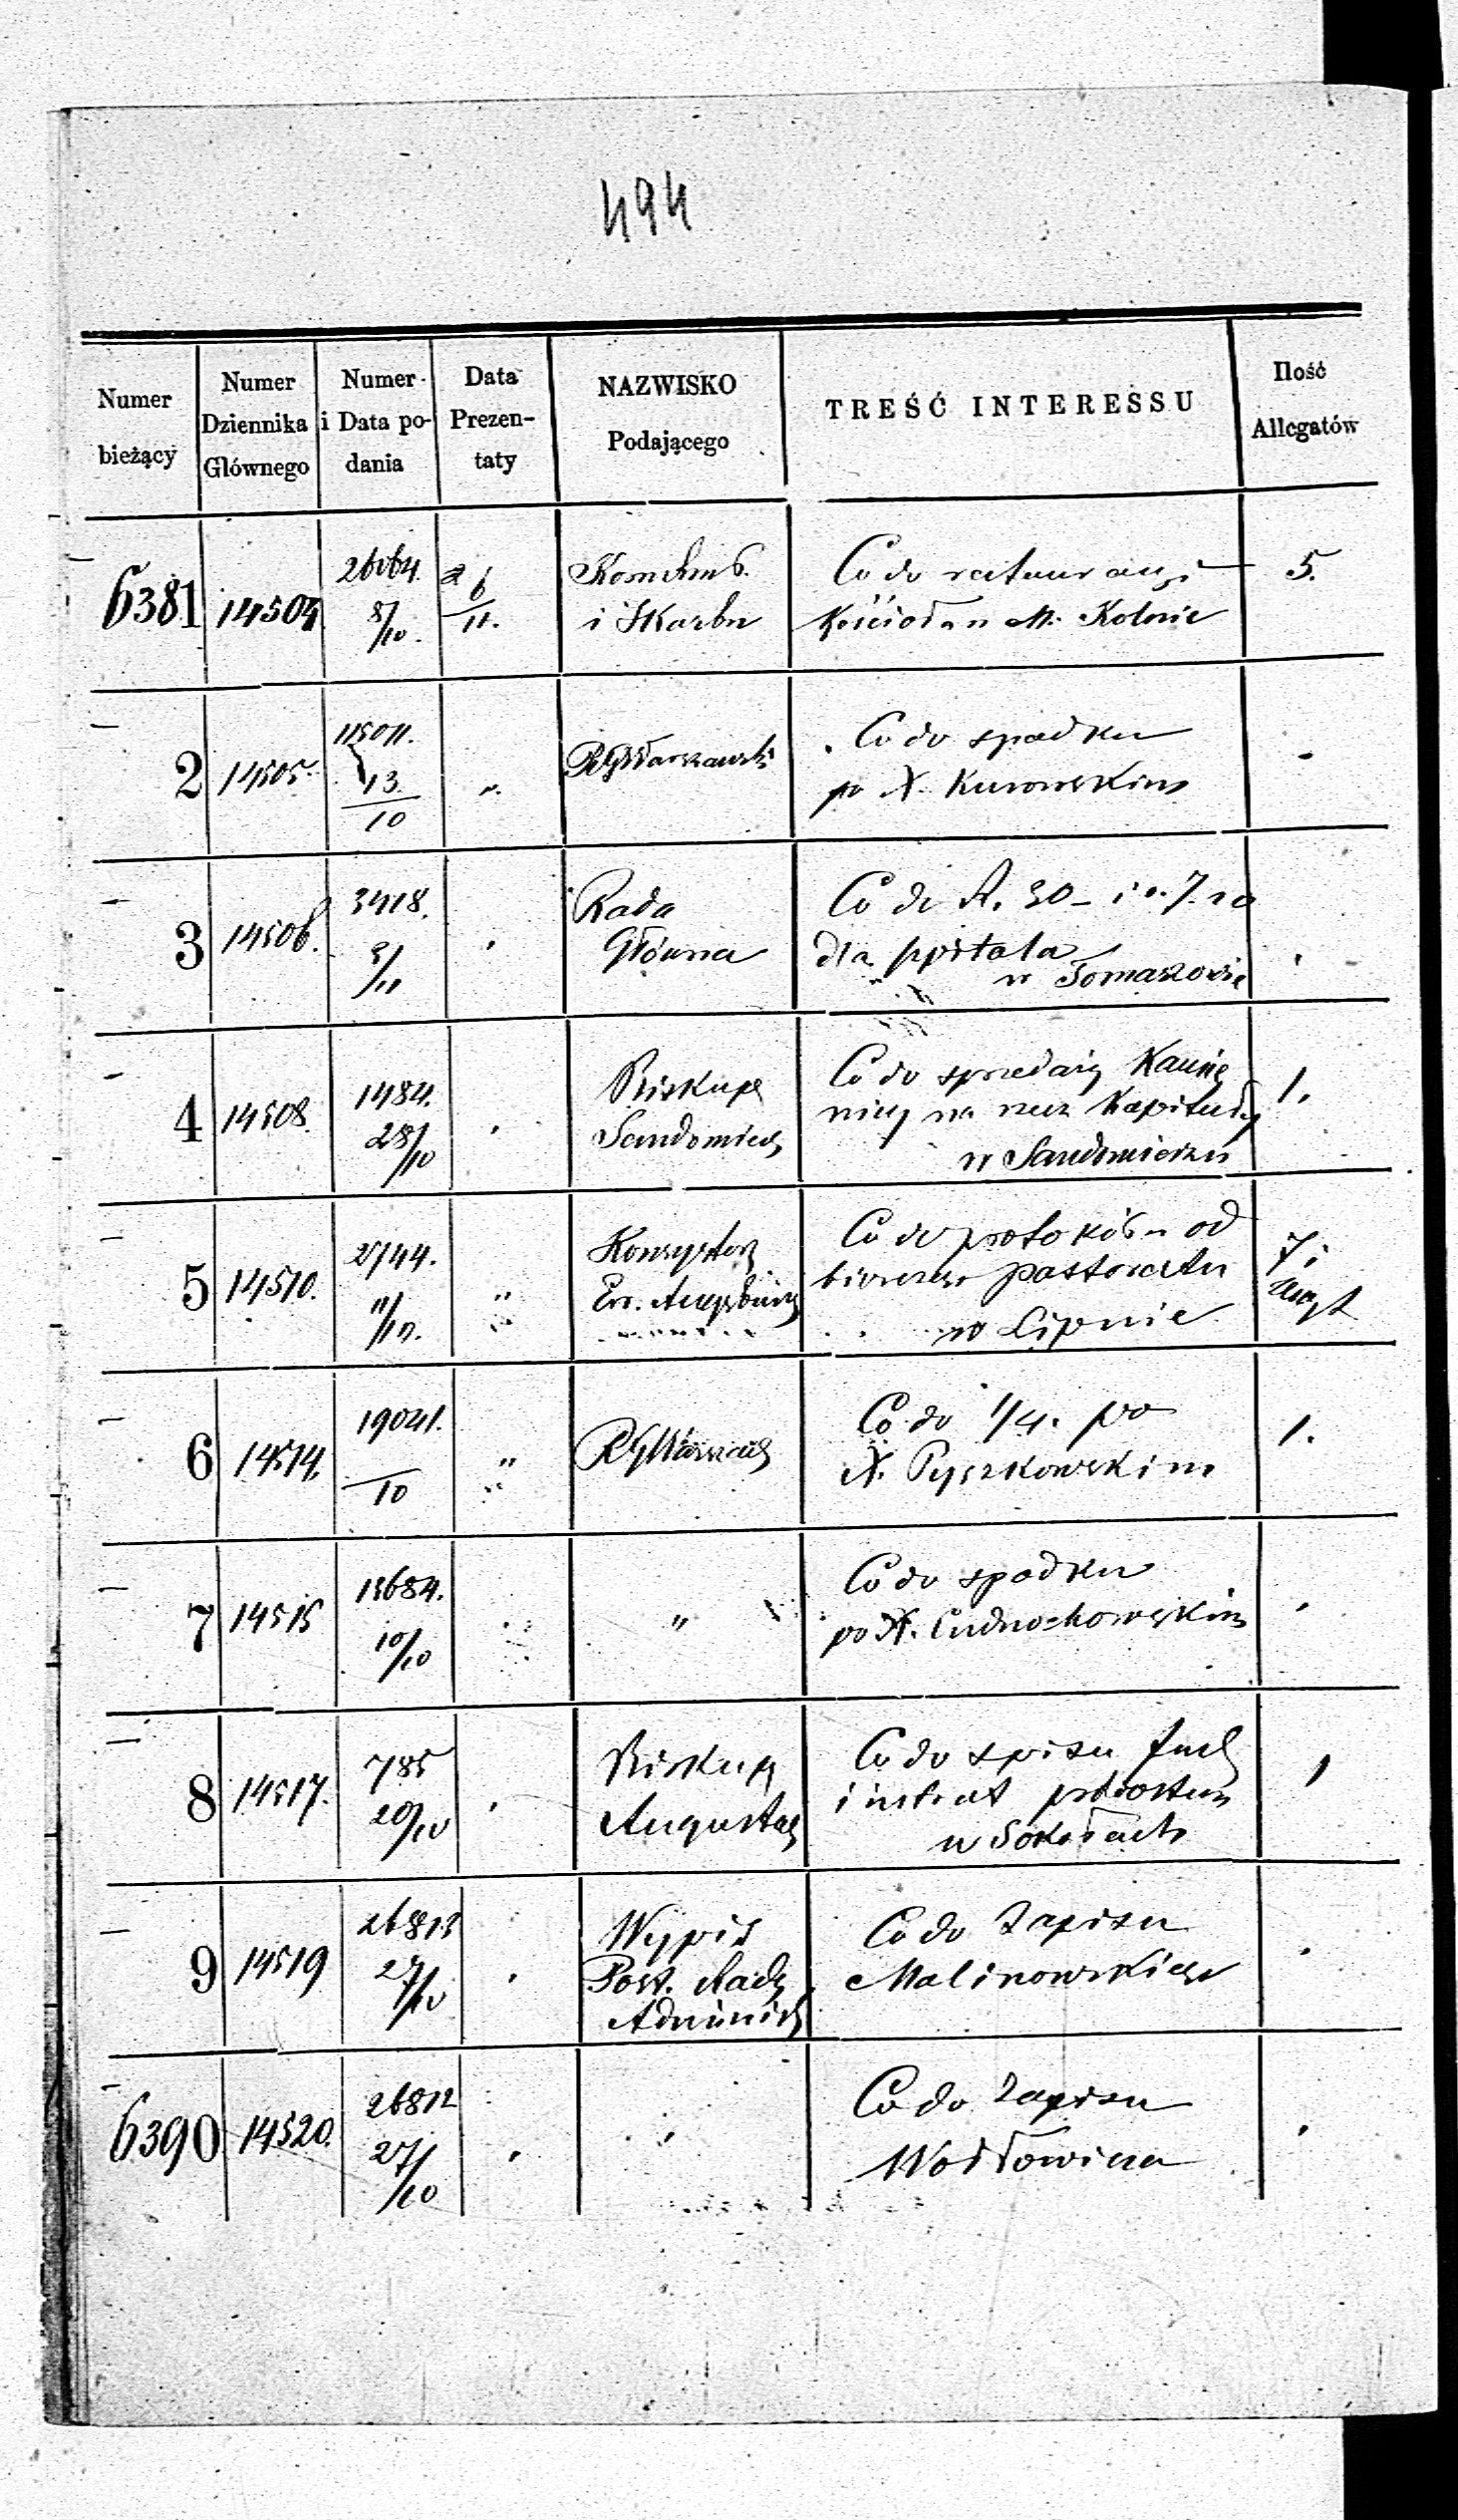 494
Numer bieżący
Numer Dziennika Głównego
Numer i Data podania
Data Prezentaty
NAZWISKO Podającego
TREŚĆ INTERESSU
Ilość Allegatów
6381 14504 8/10. 6/11. i Skarbu Co do restauracji Kościoła w M. Kolnie 5.
2 14505. 13/10 " RGWarszawski Co do spadku po X. Kurowskim -
3 14506. 3418. 3/11 Rada Główna Co do dla szpitala w Tomaszowie
4 14508. 1484. 28/10 Biskup Sandomier Co do sprzedaży Kamienicy na rzecz Kapituły w Sandomierzu 1.
5 14510. 2744. " Konsystorz Ew. Augsburg Co do protokółu odbiorczego pastoratu w Lipnie 7 i
6 14514. 19041. /10 " RGWarszaws Co do 1/4. po X. Pyszkowskim 1.
7 14515 13684. 10/10 " Co do spadku po X. Cudnochowskim
8 14517. 785 20/10 Biskup Augustows Co do spisu fund i instrut probostwa w Sokołach
9 14519 26813 27/10 Wypis Post. Rady Administ Co do Zapisu Malinowskiego
6390 14520. 26812 27/10 Co do Zapisu